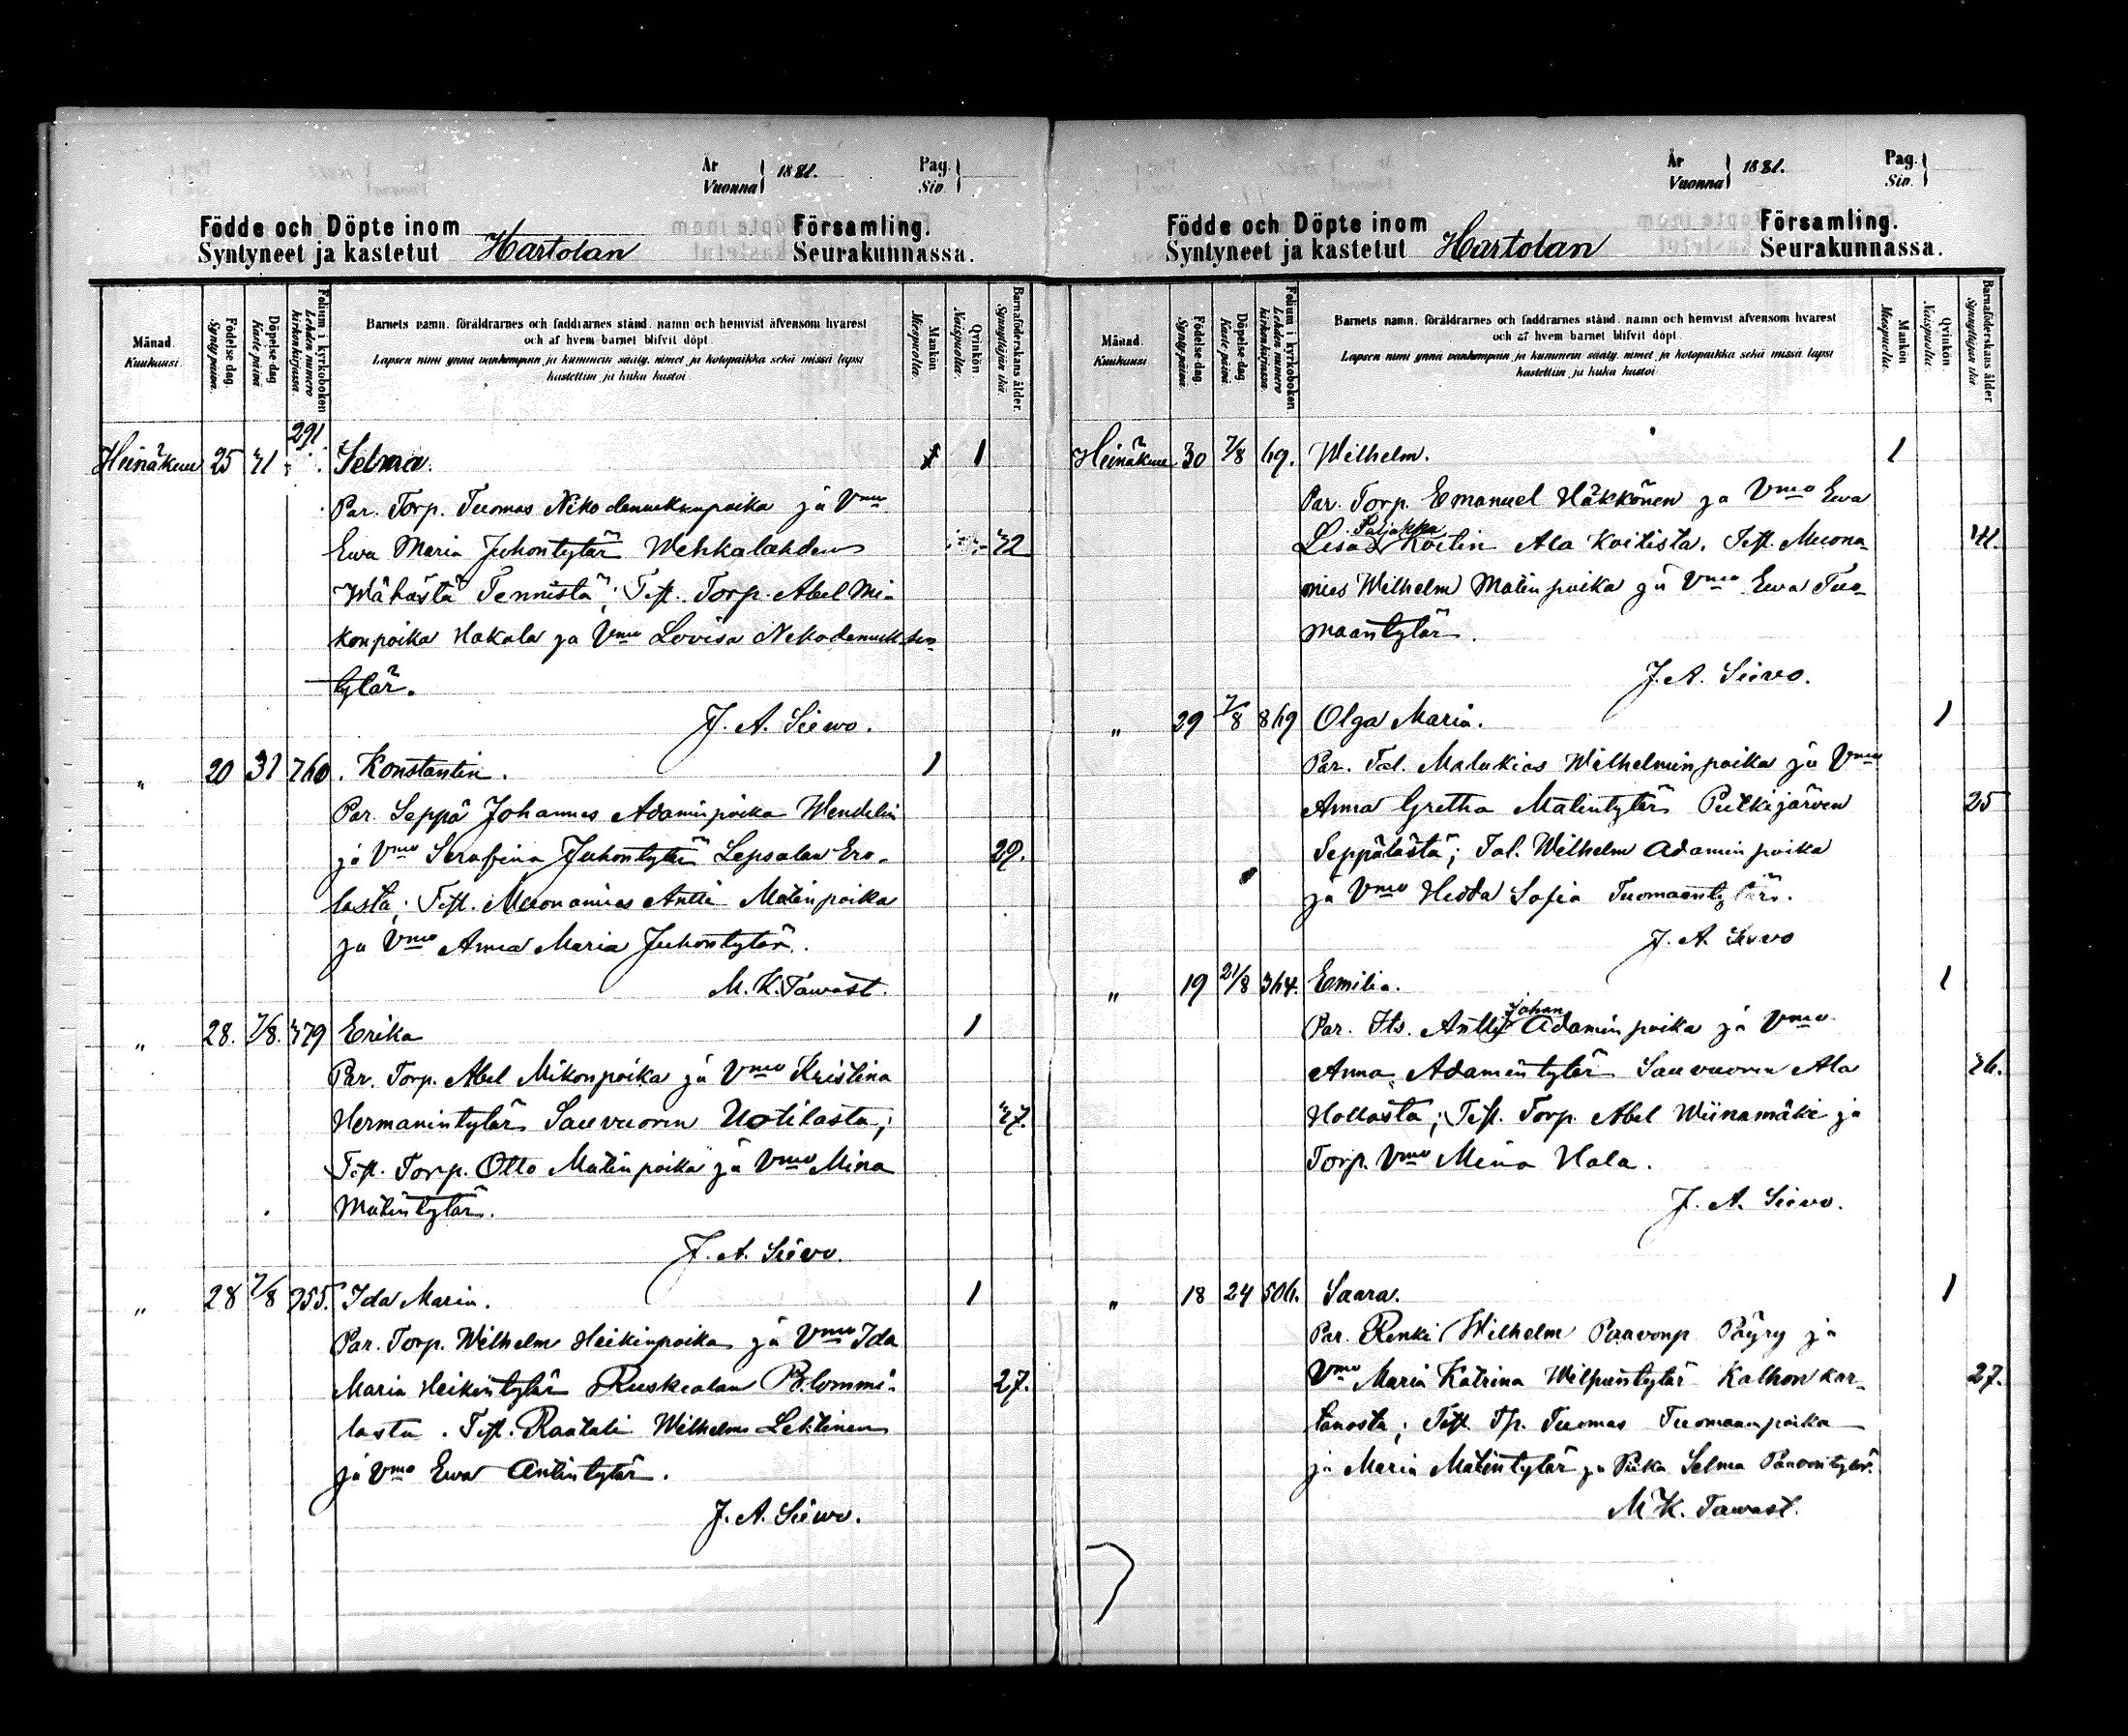 År
Vuonna 1881.
Pag.
Siv.
Födde och Döpte inom Församling.
Syntyneet ja kastetut Hartolan Seurakunnassa.
Månad. Kuukausi.
Födelsedag. Syntypäivä.
Döpelsedag Kastepäivä
Folium i kyrkoboken Lehden numero kirkonkirjassa.
Barnets namn, föräldrarnes och faddrarnes stånd, namn och hemvist äfvensom hvarest
och af hvem barnet blifvit döpt.
Lapsen nimi ynnä vanhempain ja kummein sääty, nimet ja kotopaikka sekä missä lapsi
kastettiin ja kuka kastoi
Mankön Miespuolta.
Qvinkön. Naispuolta.
Barnaföderskans ålder. Synnyttäjän ikä.
291
Heinäkuu 25 31 Selma. 1
Par. Torp. Tuomas Nikodemuksenpoika ja Vmo
Ewa Maria Juhontytär Wehkalahden 32
Wähästä Tennistä; Test. Torp. Abel Mi-
konpoika Hakala ja Vmo Lovisa Nikodemuksen
tytär.
J. A. Siewo.
" 20 31 760. Konstantin. 1
Par. Seppä Johannes Adaminpoika Wendelin
ja Vmo Serafina Juhontytär Lepsalan Ero- 29.
lasta; Test. Muonamies Antti Matinpoika
ja Vmo Anna Maria Juhontytär.
M. K. Tawast.
" 28. 7/8. 379 Erika 1
Par. Torp. Abel Mikonpoika ja Vmo Kristina
Hermanintytär Sauvuoren Uotilasta; 37.
Test. Torp. Otto Matinpoika ja Vmo Mina
Matintytär.
J. A. Siewo.
" 28 7/8 955. Ida Maria. 1
Par. Torp. Wilhelm Heikinpoika ja Vmo Ida
Maria Heikintytär Ruskealan Blommi- 27.
lasta. Test. Raatali Wilhelm Lehtinen
ja Vmo Ewa Antintytär.
J. A. Siewo.
År
Vuonna 1881.
Pag.
Siv.
Födde och Döpte inom Församling.
Syntyneet ja kastetut Hartolan Seurakunnassa.
Månad. Kuukausi
Födelsedag Syntypäivä.
Döpelsedag Kastepäivä
Folium i kyrkoboken Lehden numero kirkonkirjassa.
Barnets namn, föräldrarnes och faddrarnes stånd, namn och hemvist äfvensom hvarest
och af hvem barnet blifvit döpt.
Lapsen nimi ynnä vanhempain ja kummein sääty, nimet ja kotopaikka sekä missä lapsi
kastettiin ja kuka kastoi
Mankön Miespuolta.
Qvinkön. Naispuolta.
Barnaföderskans ålder Synnyttäjän ikä
Heinäkuu 30 7/8 69. Wilhelm. 1
Par. Torp. Emanuel Häkkönen ja Vmo Ewa
Paljakka
Lisa Koitin Ala Koitista. Test. Muona-
mies Wilhelm Matinpoika ja Vmo Ewa Tuo-
maantytär.
J. A. Siewo.
" 29 7/8 869 Olga Maria. 1
Par. Tal. Malakias Wilhelminpoika ja Vmo
Anna Gretha Matintytär Putkijärven 25
Seppälästä; Tal. Wilhelm Adaminpoika
ja Vmo Hedda Sofia Tuomaantytär.
J. A. Siewo
" 19 21/8 364. Emilia. 1
Johan
Par. Its. Antti Adaminpoika ja Vmo
Anna Adamintytär Sauvuoren Ala 36.
Hollosta; Test. Torp. Abel Wiinamäki ja
Torp. Vmo Mina Hala.
J. A. Siewo.
" 18 24 506. Saara. 1
Par. Renki Wilhelm Paavonp. Päyry ja
Vmo Maria Katrina Wilpuntytär Kalhon kar- 27.
tanosta; Test. Tp. Tuomas Tuomaanpoika
ja Maria Matintytär ja Piika Selma Paavontytär.
M K. Tawast.